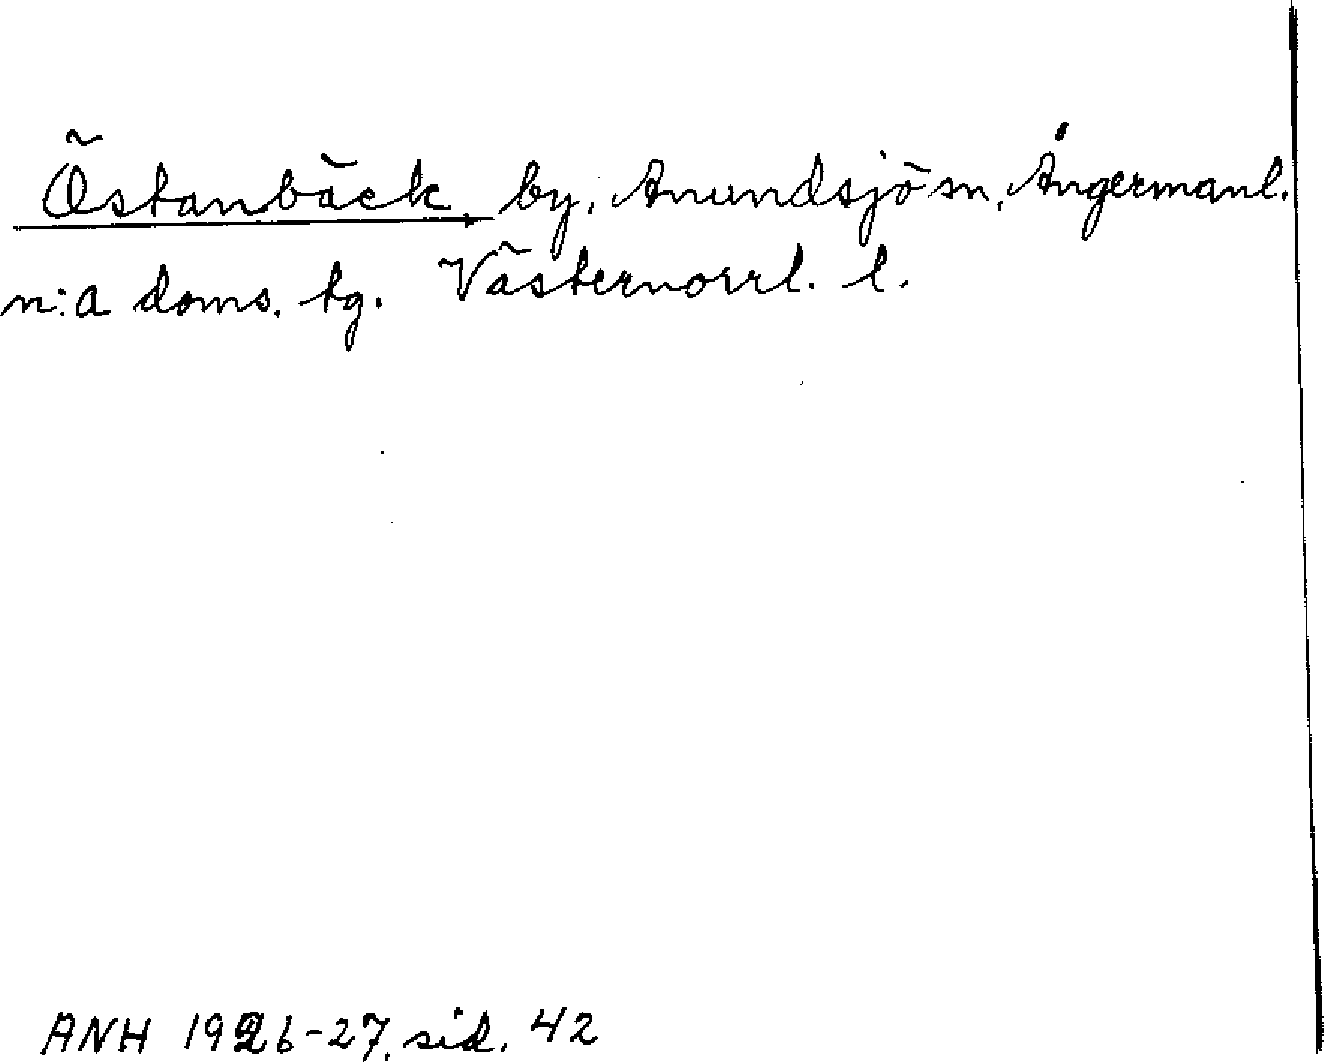 Östanbäck, by, Anundsjö sn, Ångermanl.
n:a doms. tg. Västernorrl. l.
ANH 1926-27, sid. 42